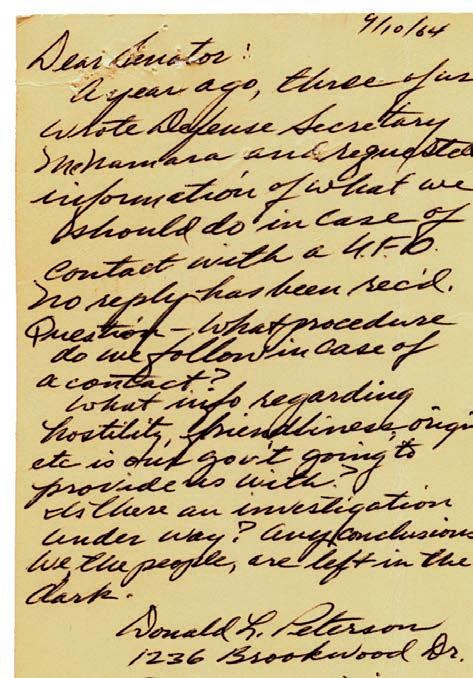 9/10/64
Dear Senator:
A year ago, three of us
wrote Defense Secretary
McNamara and requested
information of what we
should do in case of
contact with a U.F.O.
No reply has been rec'd.
Question - What procedure
do we follow in case of
a contact?
What info regarding
hostility, friendliness, origin
etc is our gov't going to
provide us with?
Is there an investigation
under way? Any conclusions
We the people, are left in the
dark.
Donald L. Peterson
1236 Brookwood Dr.